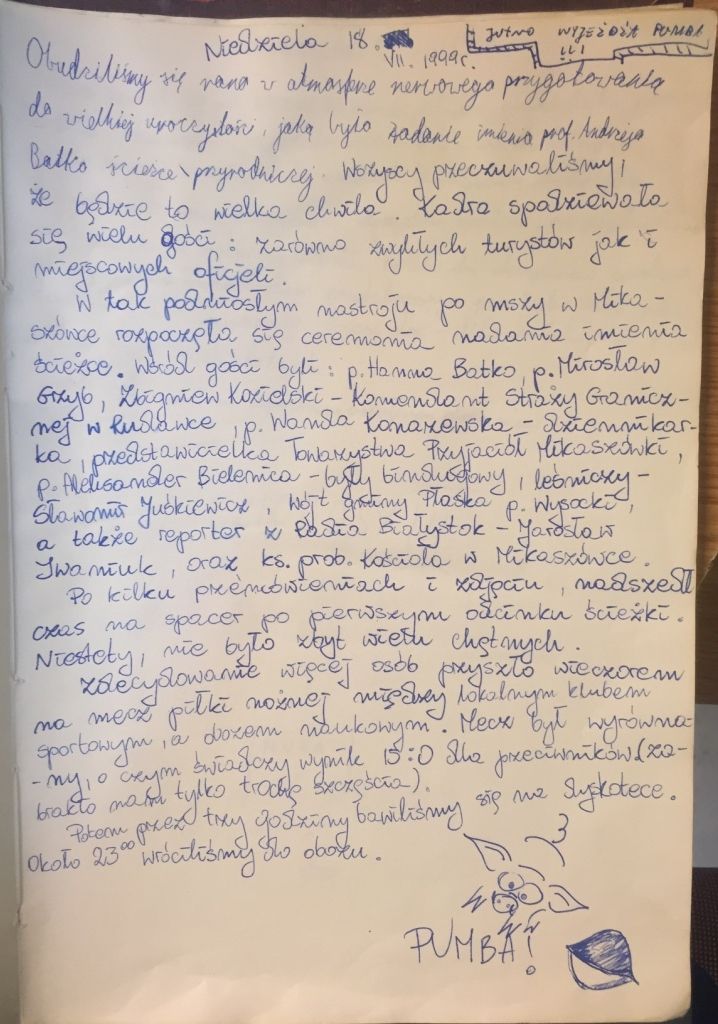 JUTRO WYJEŻDŻA PUMBA
!!!
Niedziela 18. VII. 1999r.
Obudziliśmy się rano w atmosferze nerwowego przygotowania
do wielkiej uroczystości, jaką było nadanie imienia prof. Andrzeja
Batko ścieżce przyrodniczej. Wszyscy przeczuwaliśmy,
że będzie to wielka chwila. Kadra spodziewała
się wielu gości: zarówno zwykłych turystów jak i
miejscowych oficjeli.
W tak podniosłym nastroju po mszy w Mika-
szówce rozpoczęła się ceremonia nadania imienia
ścieżce. Wśród gości byli: p. Hanna Batko, p. Mirosław
Grzyb, Zbigniew Kozielski - Komendant Straży Granicz-
nej w Rudawce, p. Wanda Konarzewska - dziennikar-
ka, przedstawicielka Towarzystwa Przyjaciół Mikaszówki,
p. Aleksander Bielenica - były bindugowy, leśniczy -
Sławomir Juśkiewicz, wójt gminy Płaska p. Wysocki,
a także reporter z Radia Białystok - Jarosław
Iwaniuk, oraz ks. prob. Kościoła w Mikaszówce.
Po kilku przemówieniach i zdjęciu, nadszedł
czas na spacer po pierwszym odcinku ścieżki.
Niestety, nie było zbyt wielu chętnych.
Zdecydowanie więcej osób przyszło wieczorem
na mecz piłki nożnej między lokalnym klubem
sportowym, a obozem naukowym. Mecz był wyrówna-
-ny, o czym świadczy wynik 15:0 dla przeciwników (za-
brakło nam tylko trochę szczęścia).
Potem przez trzy godziny bawiliśmy się na dyskotece.
Około 23⁰⁰ wróciliśmy do obozu.
PUMBA!